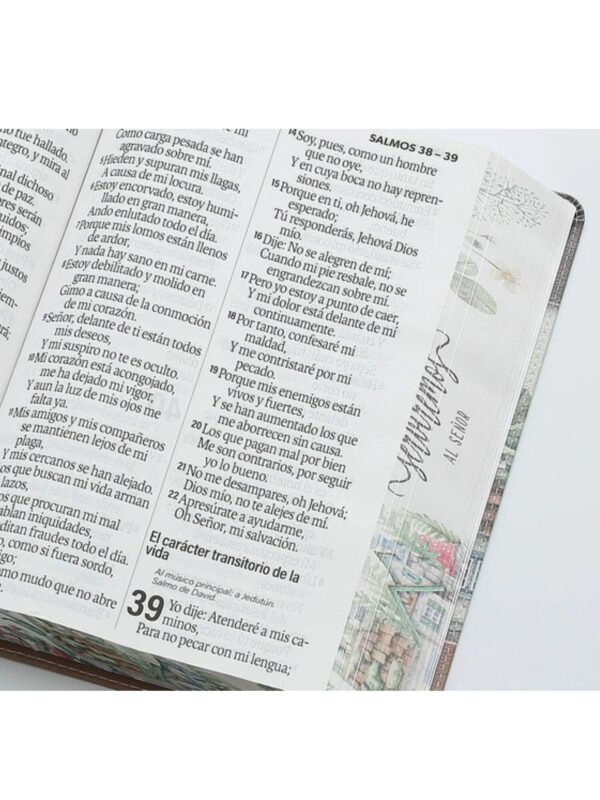 fue hallado.
y mira al
dichoso
de paz.
serán
justos
Como carga pesada se han
agravado sobre mí.
5 Hieden y supuran mis llagas,
A causa de mi locura.
6 Estoy encorvado, estoy humi-
llado en gran manera,
Ando enlutado todo el día.
7 Porque mis lomos están llenos
de ardor,
Y nada hay sano en mi carne.
8 Estoy debilitado y molido en
gran manera;
Gimo a causa de la conmoción
de mi corazón.
9 Señor, delante de ti están todos
mis deseos,
Y mi suspiro no te es oculto.
10 Mi corazón está acongojado,
me ha dejado mi vigor,
Y aun la luz de mis ojos me
falta ya.
11 Mis amigos y mis compañeros
se mantienen lejos de mi
plaga,
Y mis cercanos se han alejado.
que buscan mi vida arman
lazos,
que procuran mi mal
hablan iniquidades,
fraudes todo el día.
como si fuera sordo,
como mudo que no abre
SALMOS 38 – 39
14 Soy, pues, como un hombre
que no oye,
Y en cuya boca no hay repren-
siones.
15 Porque en ti, oh Jehová, he
esperado;
Tú responderás, Jehová Dios
mío.
16 Dije: No se alegren de mí;
Cuando mi pie resbale, no se
engrandezcan sobre mí.
17 Pero yo estoy a punto de caer,
Y mi dolor está delante de mí
continuamente.
18 Por tanto, confesaré mi
maldad,
Y me contristaré por mi
pecado.
19 Porque mis enemigos están
vivos y fuertes,
Y se han aumentado los que
me aborrecen sin causa.
20 Los que pagan mal por bien
Me son contrarios, por seguir
yo lo bueno.
21 No me desampares, oh Jehová;
Dios mío, no te alejes de mí.
22 Apresúrate a ayudarme,
Oh Señor, mi salvación.
El carácter transitorio de la
vida
Al músico principal; a Jedutún.
Salmo de David.
39 Yo dije: Atenderé a mis ca-
minos,
Para no pecar con mi lengua;
serviremos
AL SEÑOR